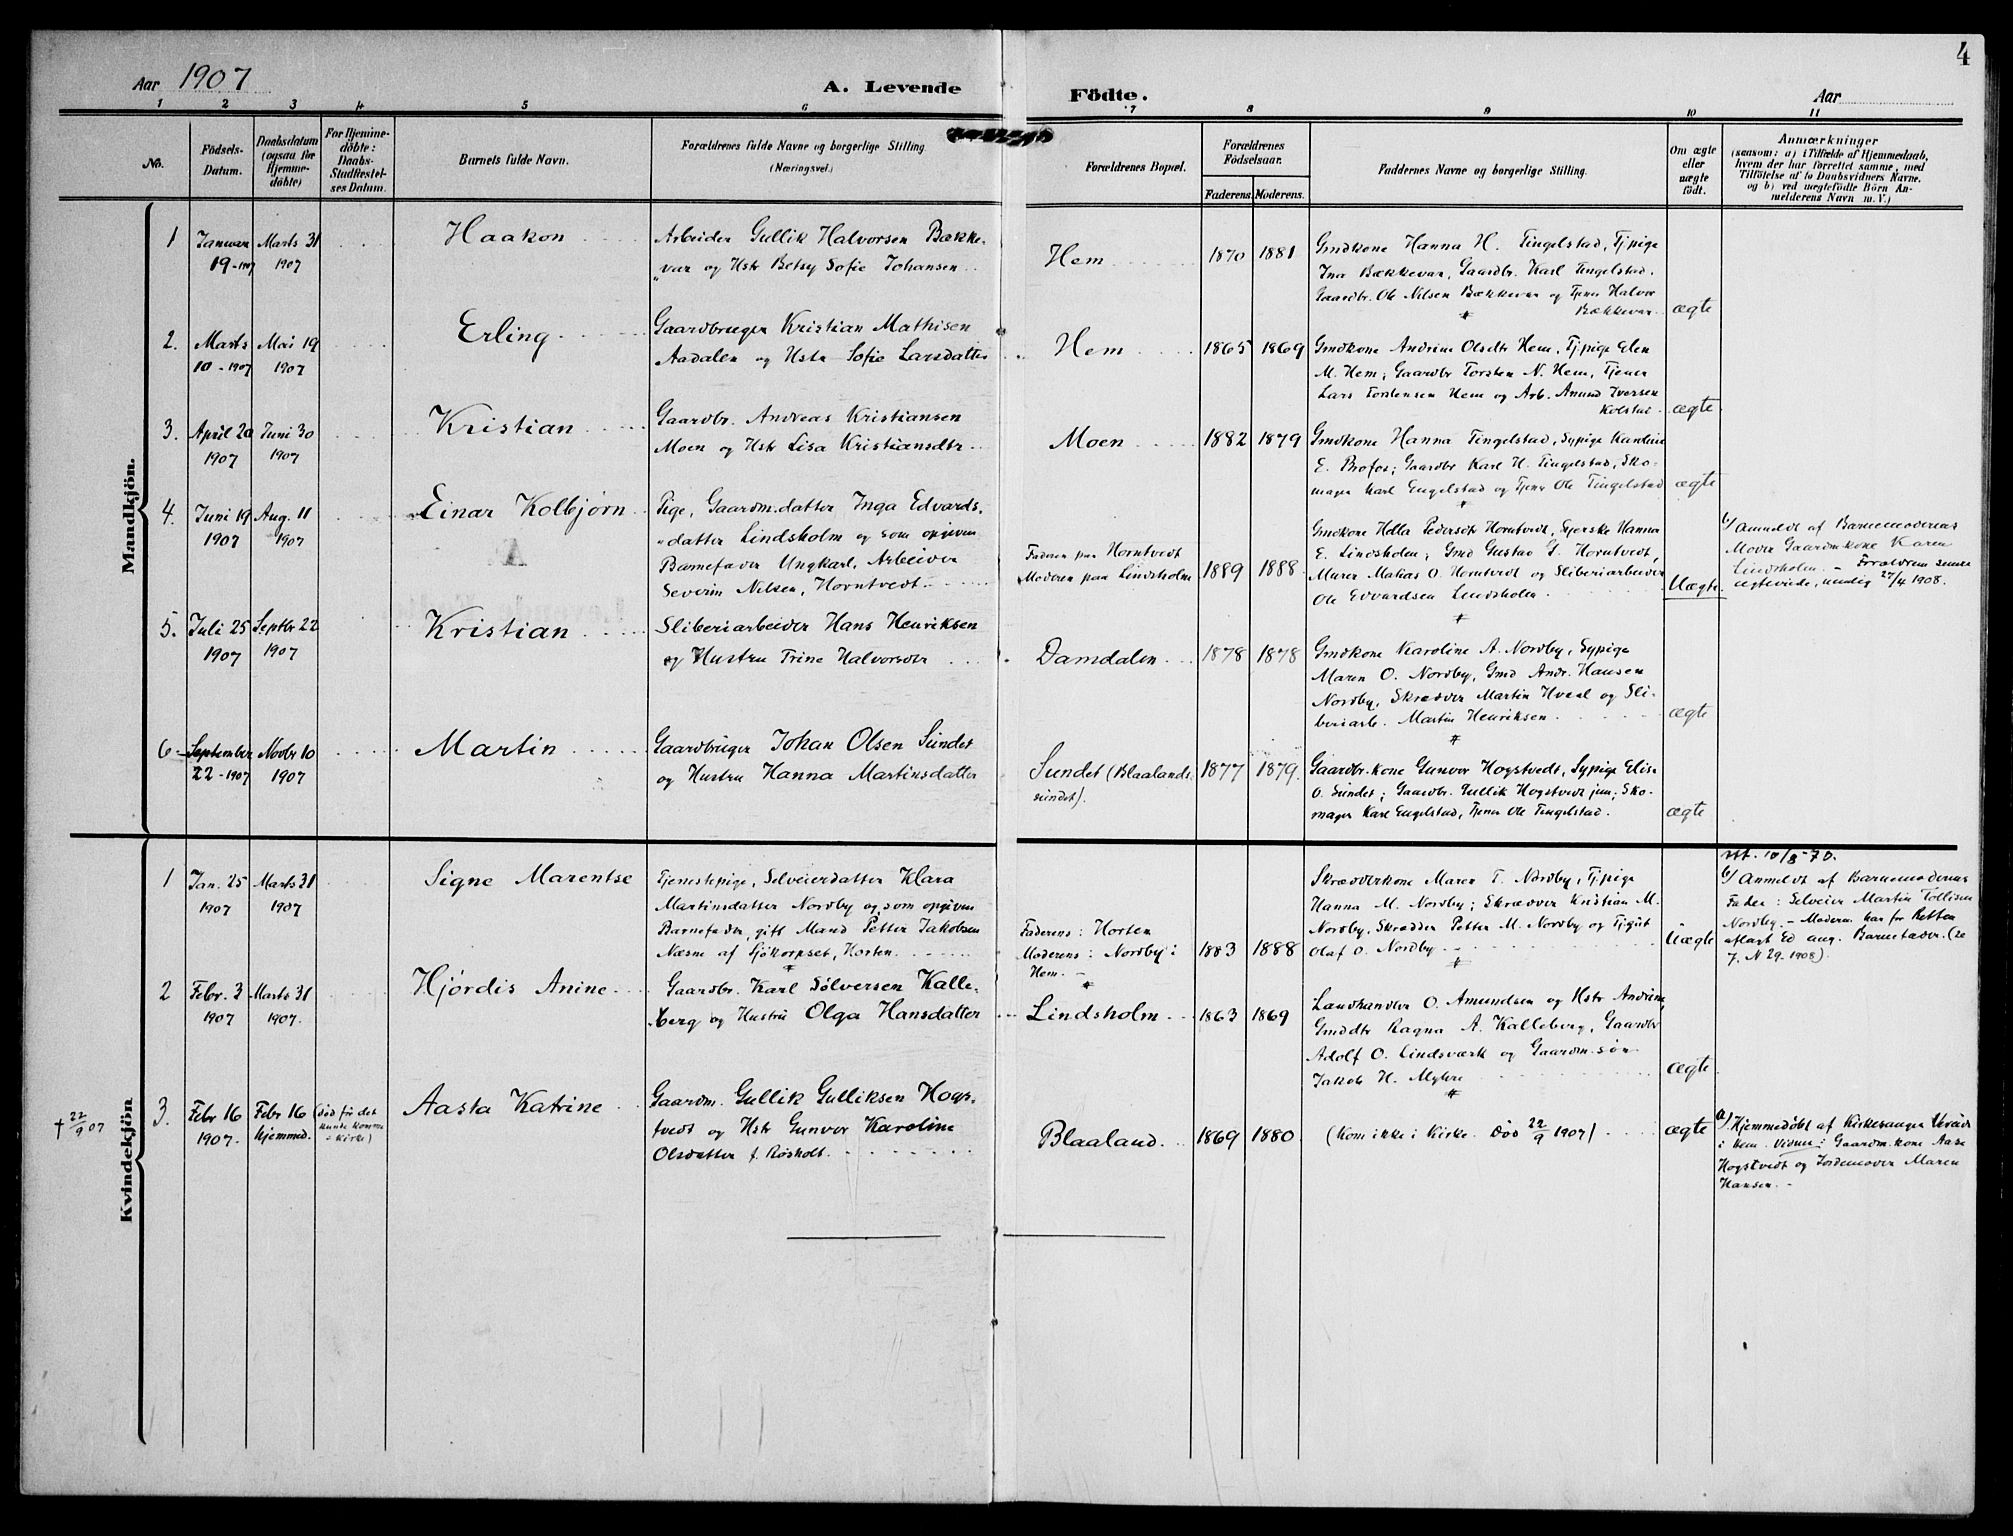 4
Aar 1907
A. Levende
Födte.
Aar
1 2 3 4 5 6 7 8 9 10 11
No.
Födsels-
Datum.
Daabsdatum
(ogsaa for
Hjemme-
döbte)
For Hjemme-
döbte:
Daabs-
Stadfæstel-
ses Datum.
Barnets fulde Navn.
Forældrenes fulde Navne og borgerlige Stilling.
(Næringsvei.)
Forældrenes Bopæl.
Forældrenes
Födselsaar.
Faderens. Moderens.
Faddernes Navne og borgerlige Stilling.
Om ægte
eller
uægte
födt.
Anmærkninger
(saasom: a) i Tilfælde af Hjemmedaab,
hvem der har forrettet samme, med
Tilföielse af to Daabsvidners Navne,
og b) ved uægtefödte Börn An-
melderens Navn m. V.)
Mandkjön.
1 Januar
19-1907
Marts 31
1907
Haakon
Arbeider Gullik Halvorsen Bække-
var og Hstr Betsy Sofie Johansen
Hem
1870 1881
Gmdkone Hanna H. Tingelstad, Tjpige
Ina Bækkevar, Gaardbr. Karl Tingelstad,
Gaardbr. Ole Nilsen Bækkevar og Tjener Halvor
Bækkevar.
ægte
2. Marts
10-1907
Mai 19
1907
Erling
Gaardbruger Kristian Mathisen
Aadalen og Hstr Sofie Larsdatter
Hem
1865 1869
Gmdkone Andrine Olsdtr Hem, Tjpige Elen
M. Hem; Gaardbr Torsten N. Hem, Tjener
Lars Torstensen Hem og Arb. Amund Iversen
Kolstad
ægte
3. April 20
1907
Juni 30
1907
Kristian
Gaardbr. Andreas Kristiansen
Moen og Hstr Lisa Kristiansdtr
Moen
1882 1879
Gmdkone Hanna Tingelstad, Sypige
E. Profos; Gaardbr Karl H. Tingelstad, Sko-
mager Karl Engelstad og Tjener Ole Tingelstad
ægte
4. Juni 19
1907
Aug. 11
1907
Einar Kolbjørn
Pige, Gaardm.datter Inga Edvards-
datter Lindsholm og som opgiven
Barnefader Ungkarl, Arbeider
Severin Nilsen, Horntvedt
Faderen paa Horntvedt
Moderen paa Lindsholm
1889 1888
Gmdkone Helle Pedersdtr Horntvedt, Syerske Hanna
E. Lindsholm; Gmd Gustav G. Horntvedt,
Murer Matias O. Horntvedt og Sliberiarbeider
Ole Edvardsen Lindsholm
Uægte
b/ Anmeldt af Barnemoderens
Moder Gaardm.kone Karen
Lindsholm. – Forældrene senere
ægteviede, nemlig 27/4 1908.
5. Juli 25
1907
Septbr 22
1907
Kristian
Sliberiarbeider Hans Henriksen
og Hustru Trine Halvorsdtr
Damdalen
1878 1878
Gmdkone Karoline A. Nordby, Sypige
Maren O. Nordby, Gmd Andr. Hansen
Nordby, Skræder Martin Hvaal og Sli-
beriarb. Martin Henriksen
ægte
6 September
22-1907
Novbr 10
1907
Martin
Gaardbruger Johan Olsen Sundet
og Hustru Hanna Martinsdatter
Sundet (Blaalands-
sundet).
1877 1879
Gaardbr.kone Gunvor Hogstvedt, Sypige Elise
O. Sundet; Gaardbr. Gullik Hogstvedt jun; Sko-
mager Karl Engelstad, Tjener Ole Tingelstad.
ægte
Kvindekjön
1 Jan. 25
1907
Marts 31
1907
Signe Marentse
Tjenestepige, Selveierdatter Klara
Martinsdatter Nordby og som opgiven
Barnefader, gift Mand Petter Jakobsen
Næsne af Sjökorpset, Horten
Faderens: Horten
Moderens: Nordby i
Hem.
1883 1888
Skrædderkone Maren T. Nordby, Tjpige
Hanna M. Nordby; Skrædder Kristian M.
Nordby, Skrædder Petter M. Nordby og Tjgut
Olaf O. Nordby
Uægte
att. 10/8-70.
b/ Anmeldt af Barnemoderens
Fader: Selveier Martin Tollisen
Nordby. – Moderen har for Retten
aflagt Ed ang. Barnefader. (se
J. N 29-1908).
2 Febr. 3
1907
Marts 31
1907.
Hjørdis Anine
Gaardbr. Karl Sølversen Kalle-
berg og Hustru Olga Hansdatter
Lindsholm
1863 1869
Landhandler O. Amundsen og Hstr Andrine,
Gmddtr Ragna A. Kalleberg, Gaardbr
Adolf O. Lindsværk og Gaardm.søn
Jakob H. Myhre
ægte
† 22/9 07
3. Febr 16
1907.
Febr 16
hjemmed.
(død før det
kunde komme
i Kirke)
Aasta Katrine
Gaardm. Gullik Gulliksen Hogs-
tvedt og Hstr Gunvor Karoline
Olsdatter f. Røsholt.
Blaaland
1869 1880
(Kom ikke i Kirke. Død 22/9 1907)
ægte
a) Hjemmedøbt af Kirkesanger
i Hem. Vidner: Gaardm.kone Aase
Hogstvedt og Jordemoder Maren
Hansen. –